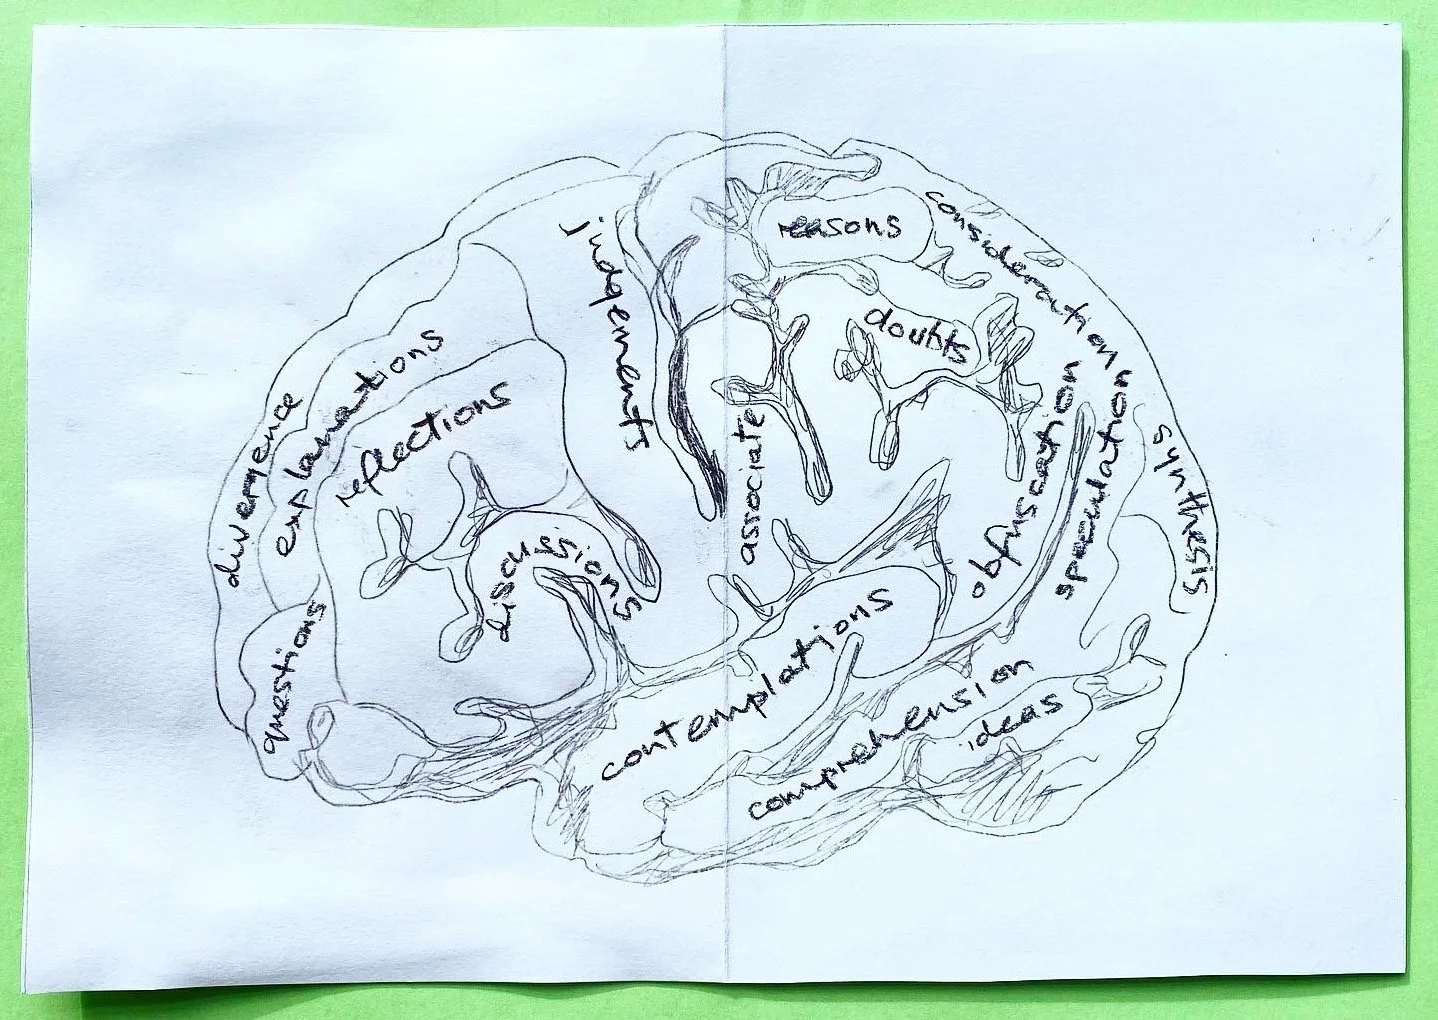 divergence
explanations
reflections
questions
discussions
judgements
reasons
doubts
associate
considerations
obfuscation
speculations
synthesis
contemplations
comprehension
ideas